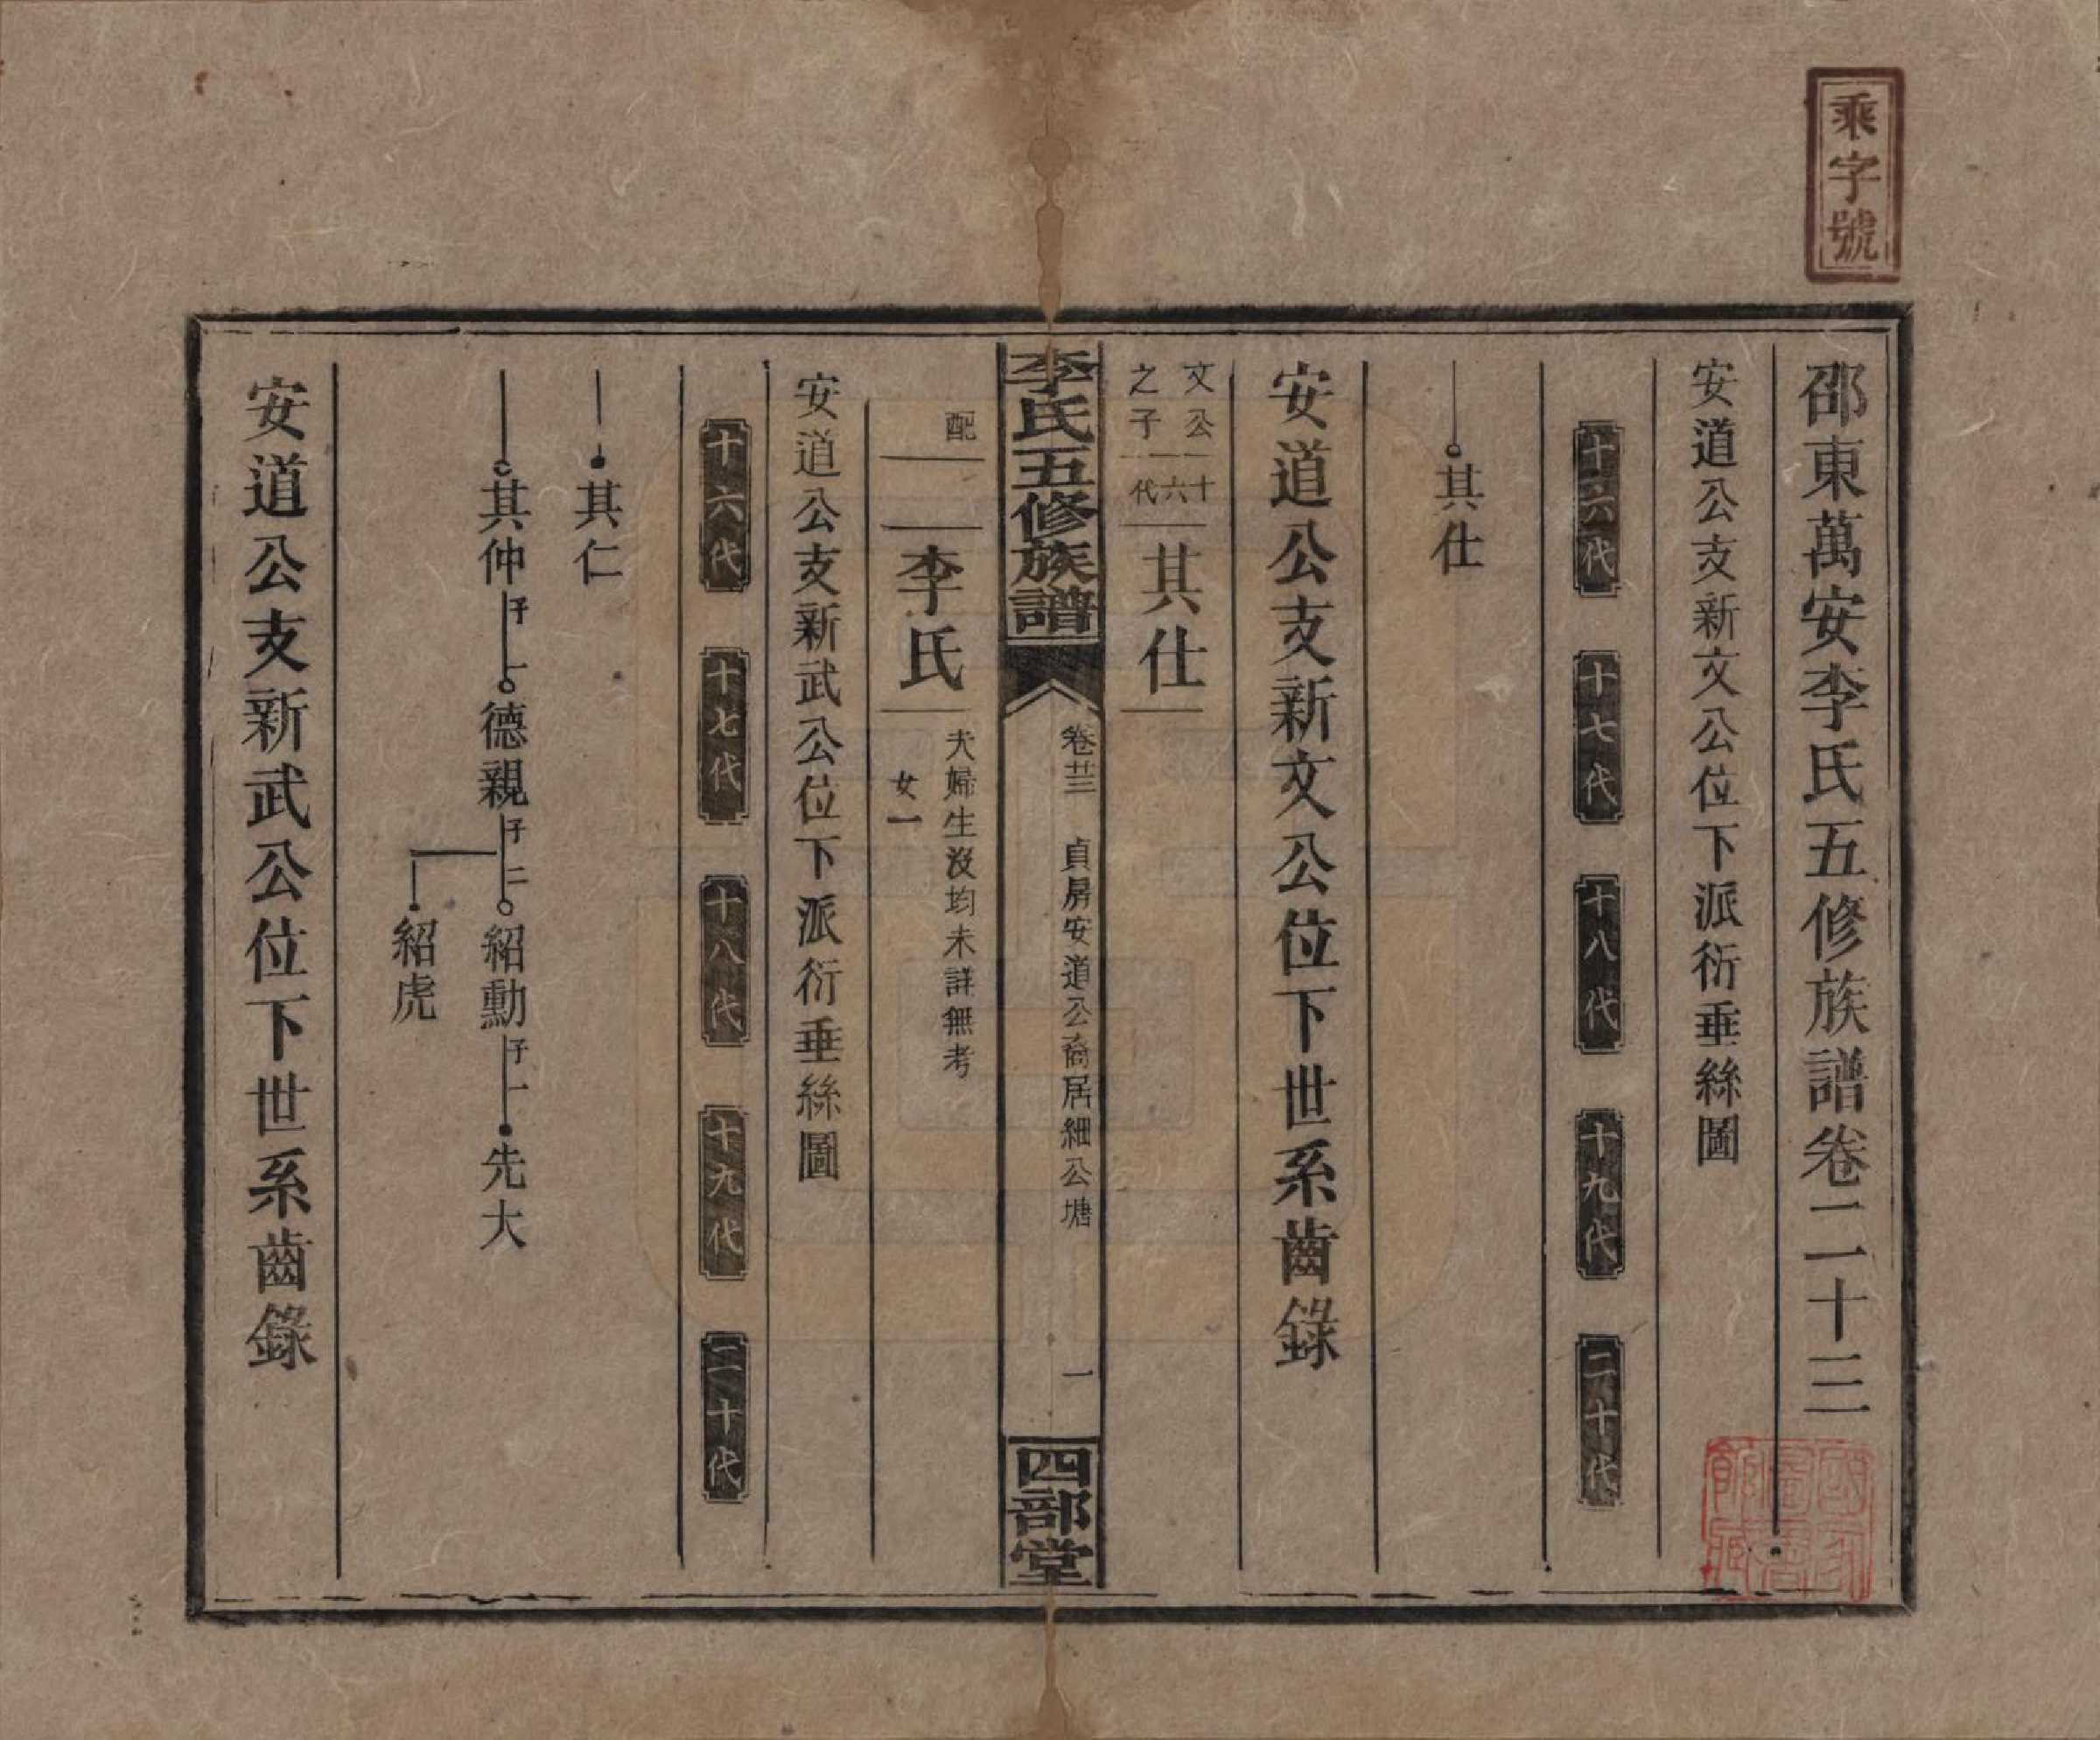 乘字號
邵東萬安李氏五修族譜卷二十三
安道公支新文公位下派衍垂絲圖
十六代 十七代 十八代 十九代 二十代
其仕
安道公支新文公位下世系齒錄
文公
之子
十六代
其仕
李氏五修族譜
卷廿三 貞房安道公裔居細公塘 一
四部堂
配
李氏
夫婦生沒均未詳無考
女一
安道公支新武公位下派衍垂絲圖
十六代 十七代 十八代 十九代 二十代
其仁
其仲 子一 德親 子二 紹勳 子一 先大
紹虎
安道公支新武公位下世系齒錄